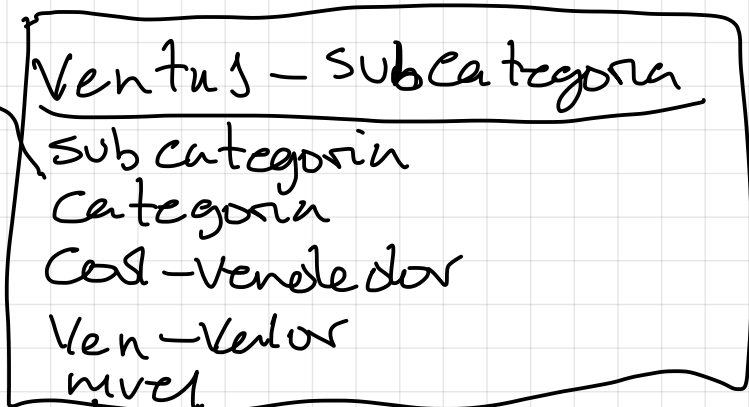 Ventas - subcategoria
subcategoria
Categoria
Cod-Vendedor
Ven-Valor
nivel